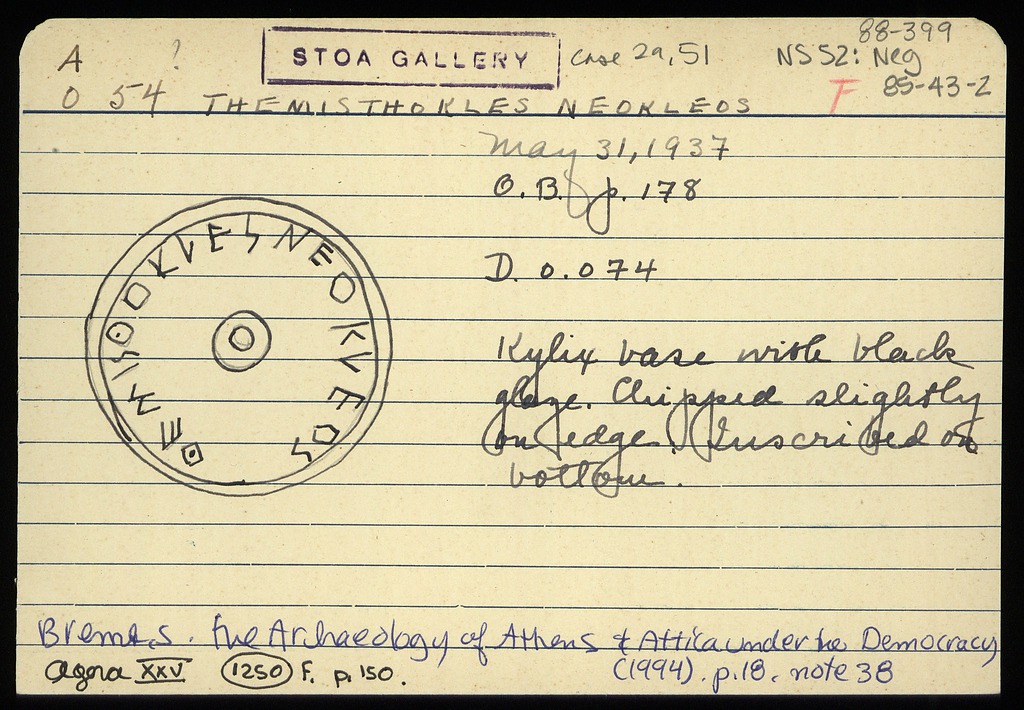 88-399
A ? STOA GALLERY Case 29,51 NS 52: Neg
O 54 THEMISTHOKLES NEOKLEOS F 85-43-2
May 31, 1937
O.B. p. 178
D. 0.074
Kylix base with black
glaze. Chipped slightly
on edge. Inscribed on
bottom.
The Archaeology of Athens & Attica under the Democracy
Agora XXV 1250 F. p. 150. (1994). p.18. note 38